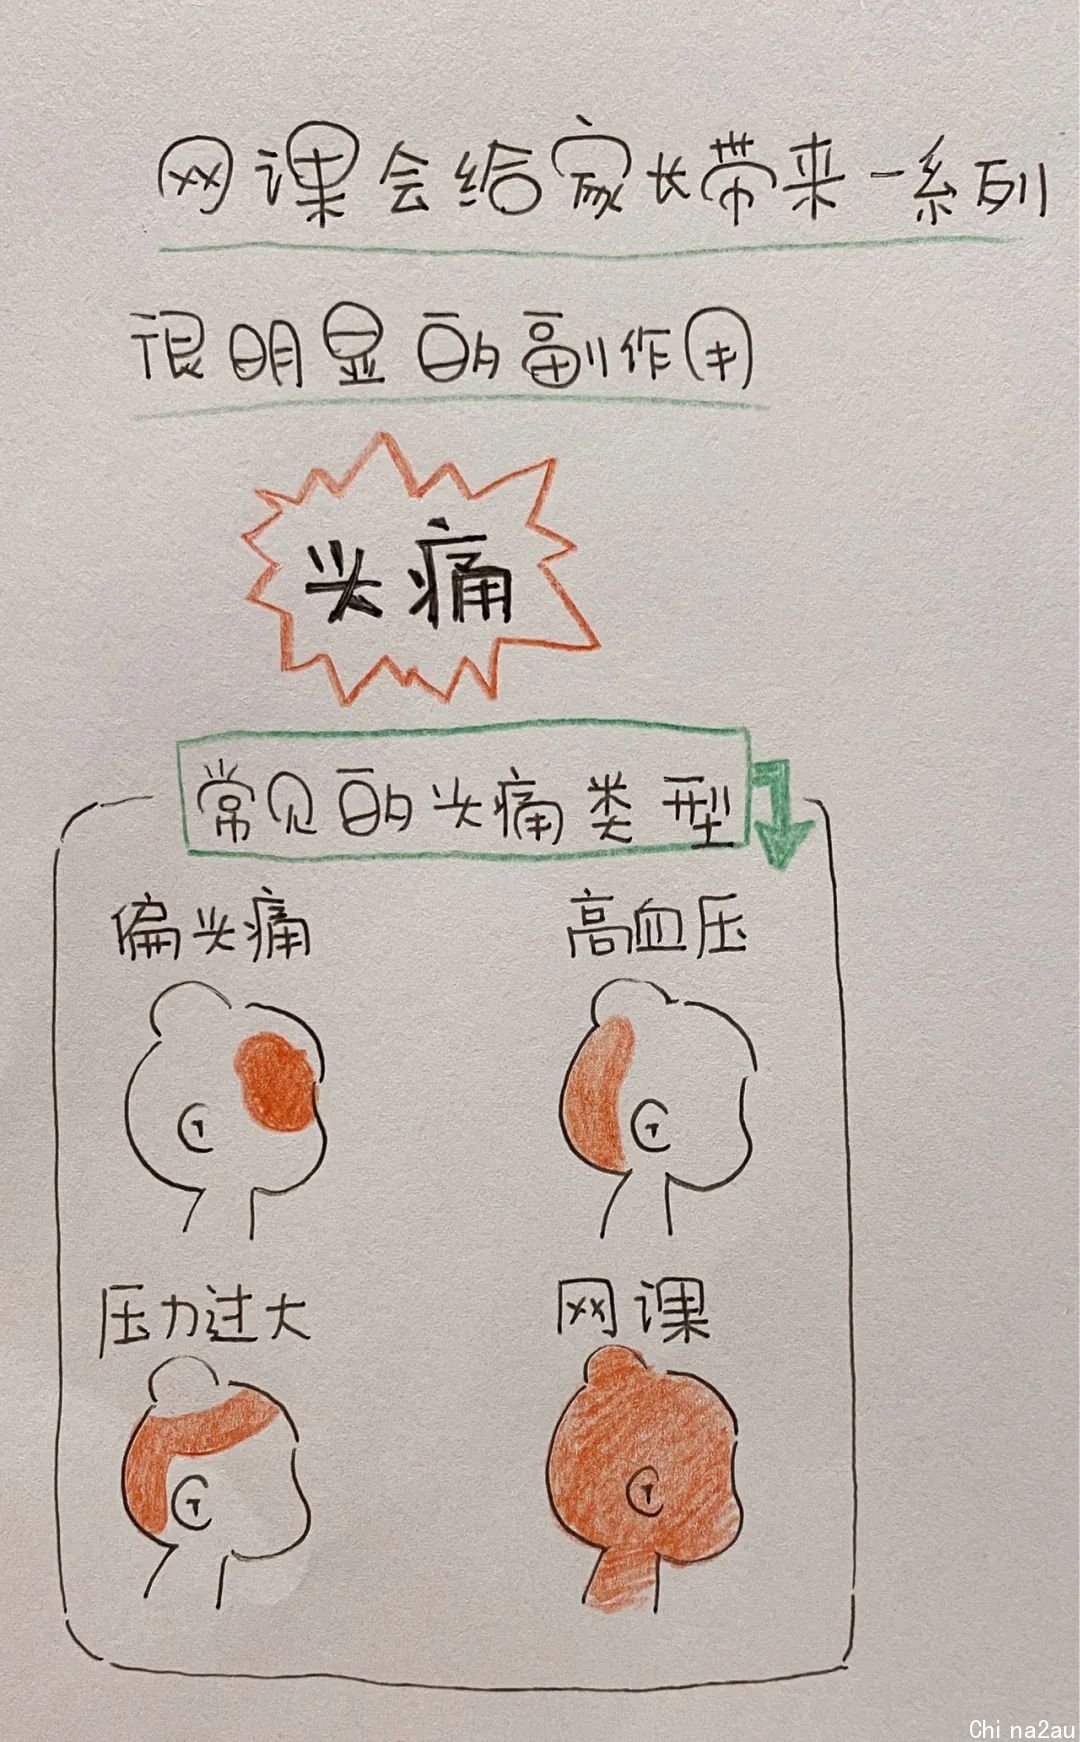 网课会给家长带来一系列
很明显的副作用
头痛
常见的头痛类型
偏头痛 高血压
压力过大 网课
Chi na2au